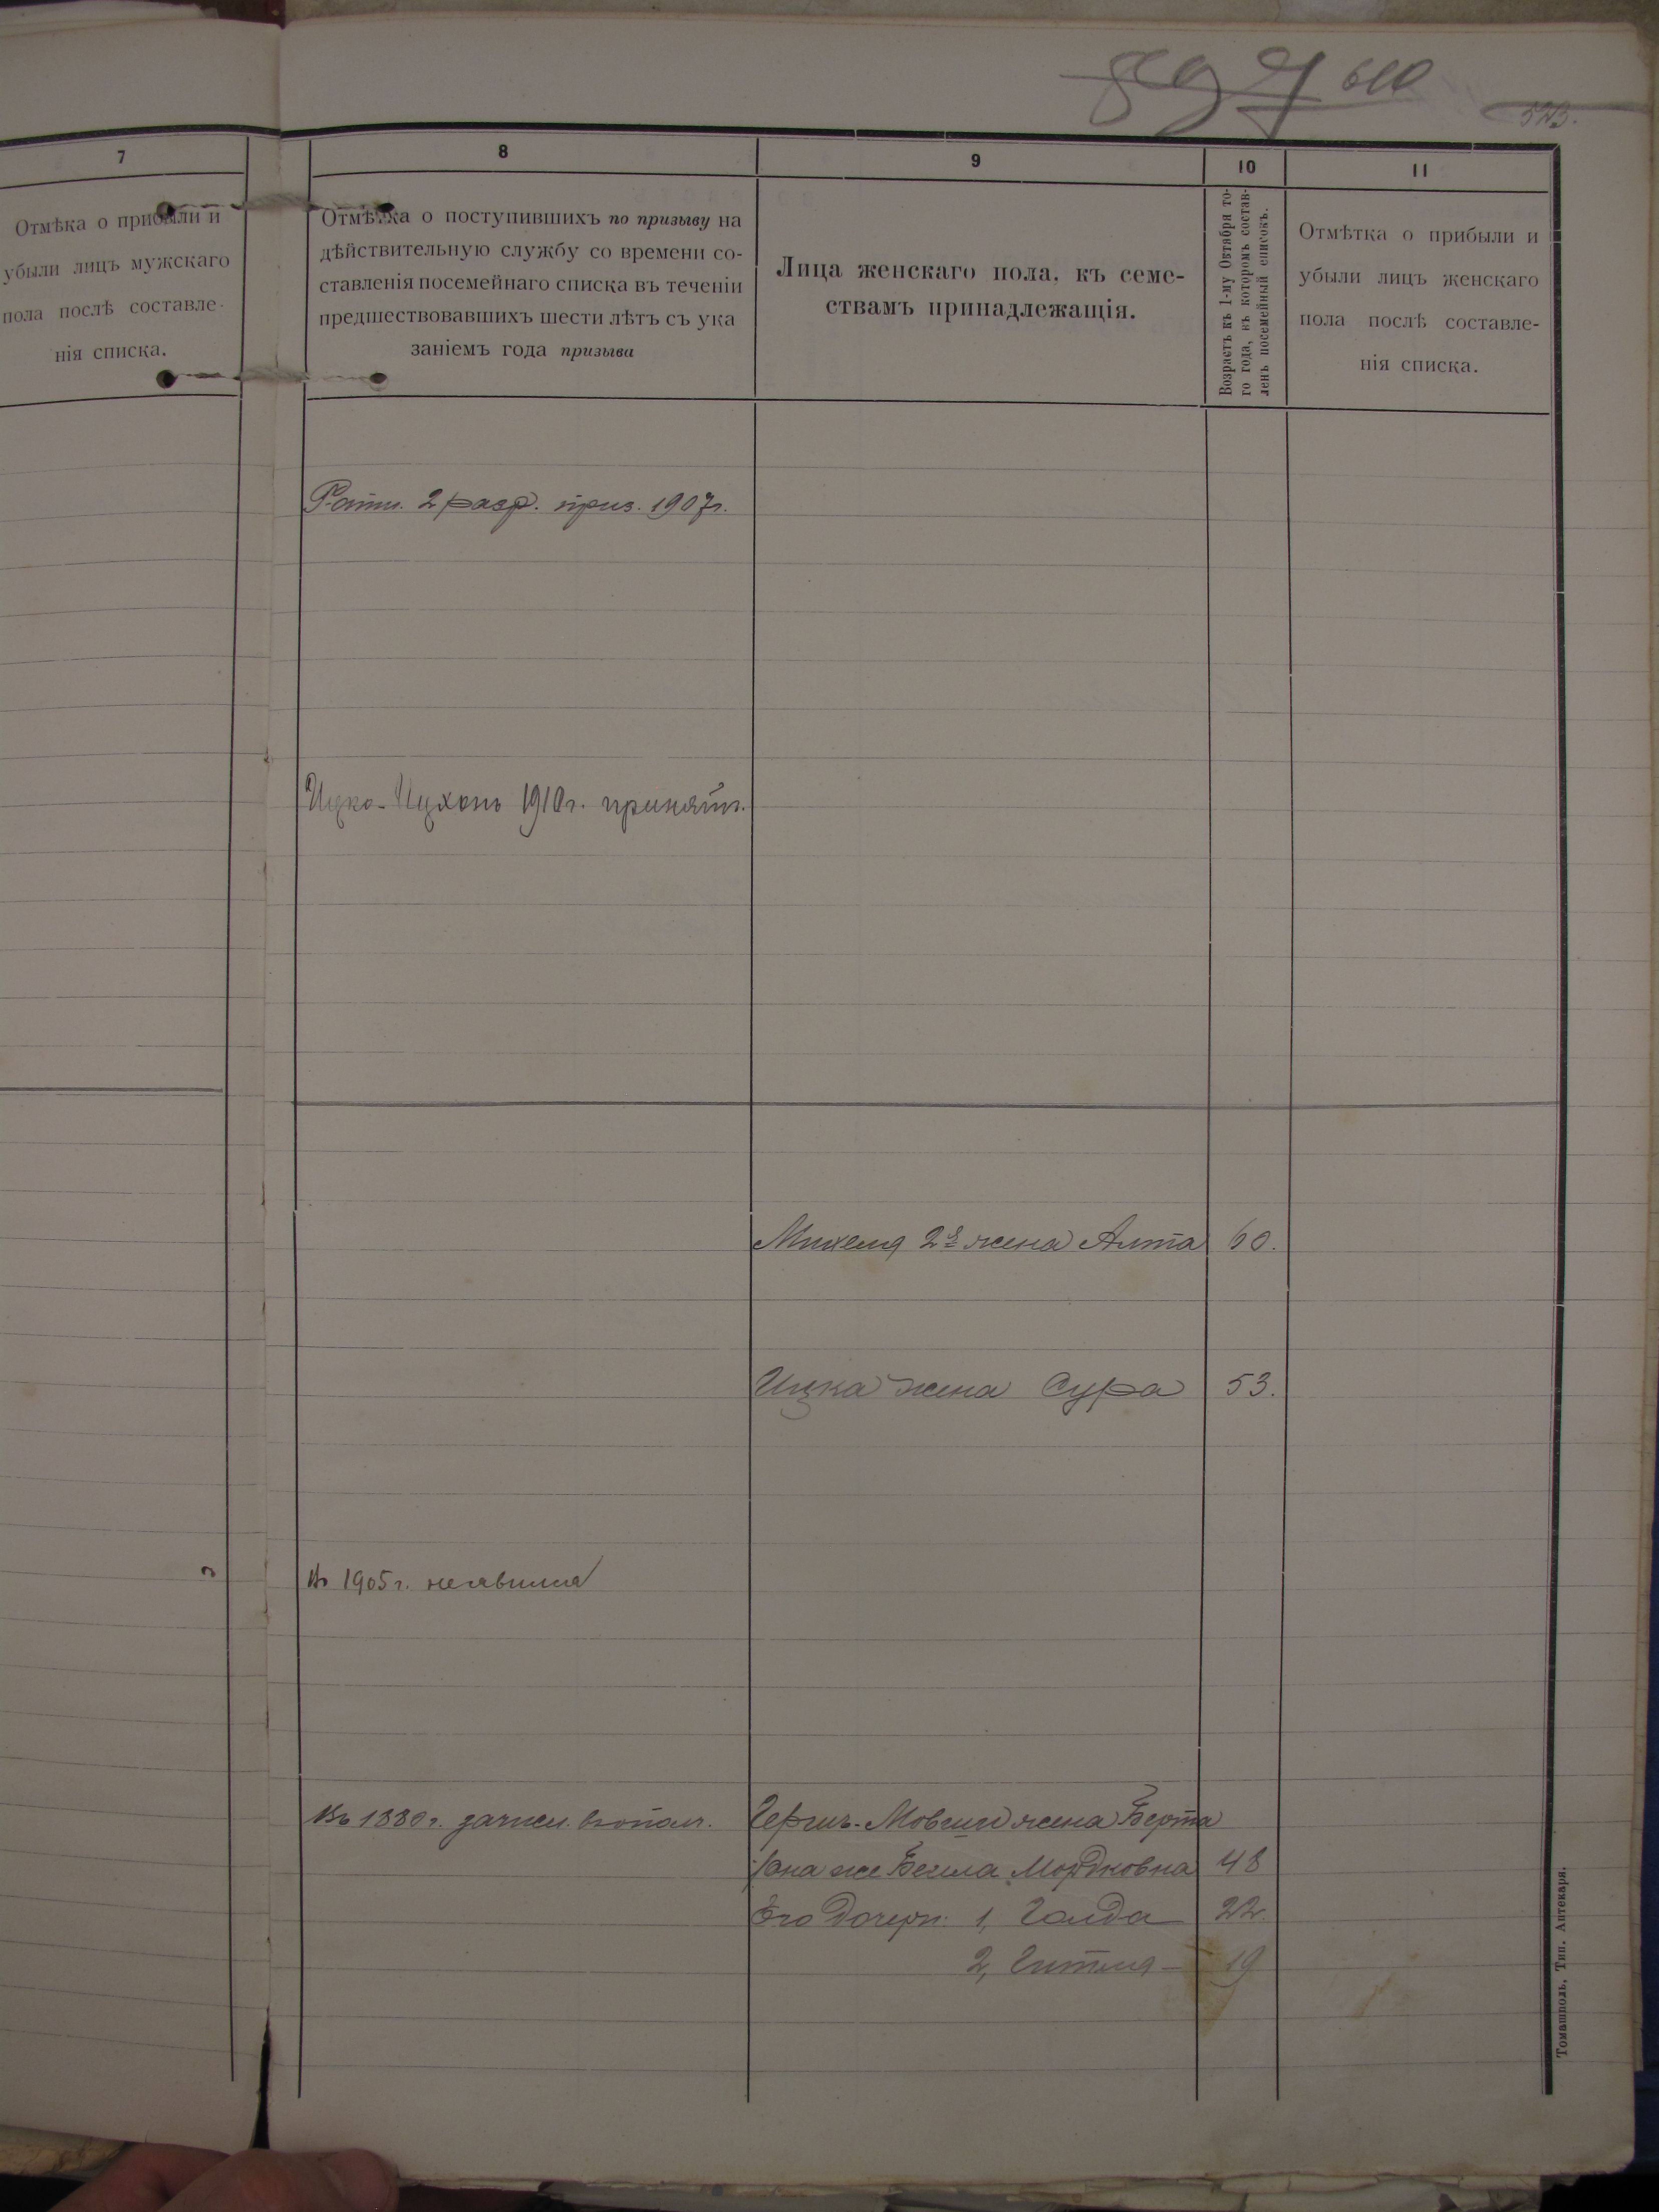 610
523.
7
Отмѣка о прибыли и
убыли лицъ мужскаго
пола послѣ составле-
нія списка.
8
Отмѣтка о поступившихъ по призыву на
дѣйствительную службу со времени со-
ставленія посемейнаго списка въ теченіи
предшествовавшихъ шести лѣтъ съ ука
заніемъ года призыва
9
Лица женскаго пола, къ семе-
ствамъ принадлежащія.
10
Возрастъ къ 1-му Октября то-
го года, въ которомъ состав-
ленъ посемейный списокъ.
11
Отмѣтка о прибыли и
убыли лицъ женскаго
пола послѣ составле-
нія списка.
Ратн. 2 разр. приз. 1907г.
Ицко-Ицхокъ 1910г. принятъ.
Михеля 2я жена Алта 60.
Ицка жена Сура 53.
Въ 1905г. неявился
Въ 1880г. зачисл. вополч.
Гершъ-Мовши жена Берта
она же Бейла Мордковна 48
Его дочери: 1, Голда 22.
2, Гитля — 19
Томашполь, Тип. Аптекаря.